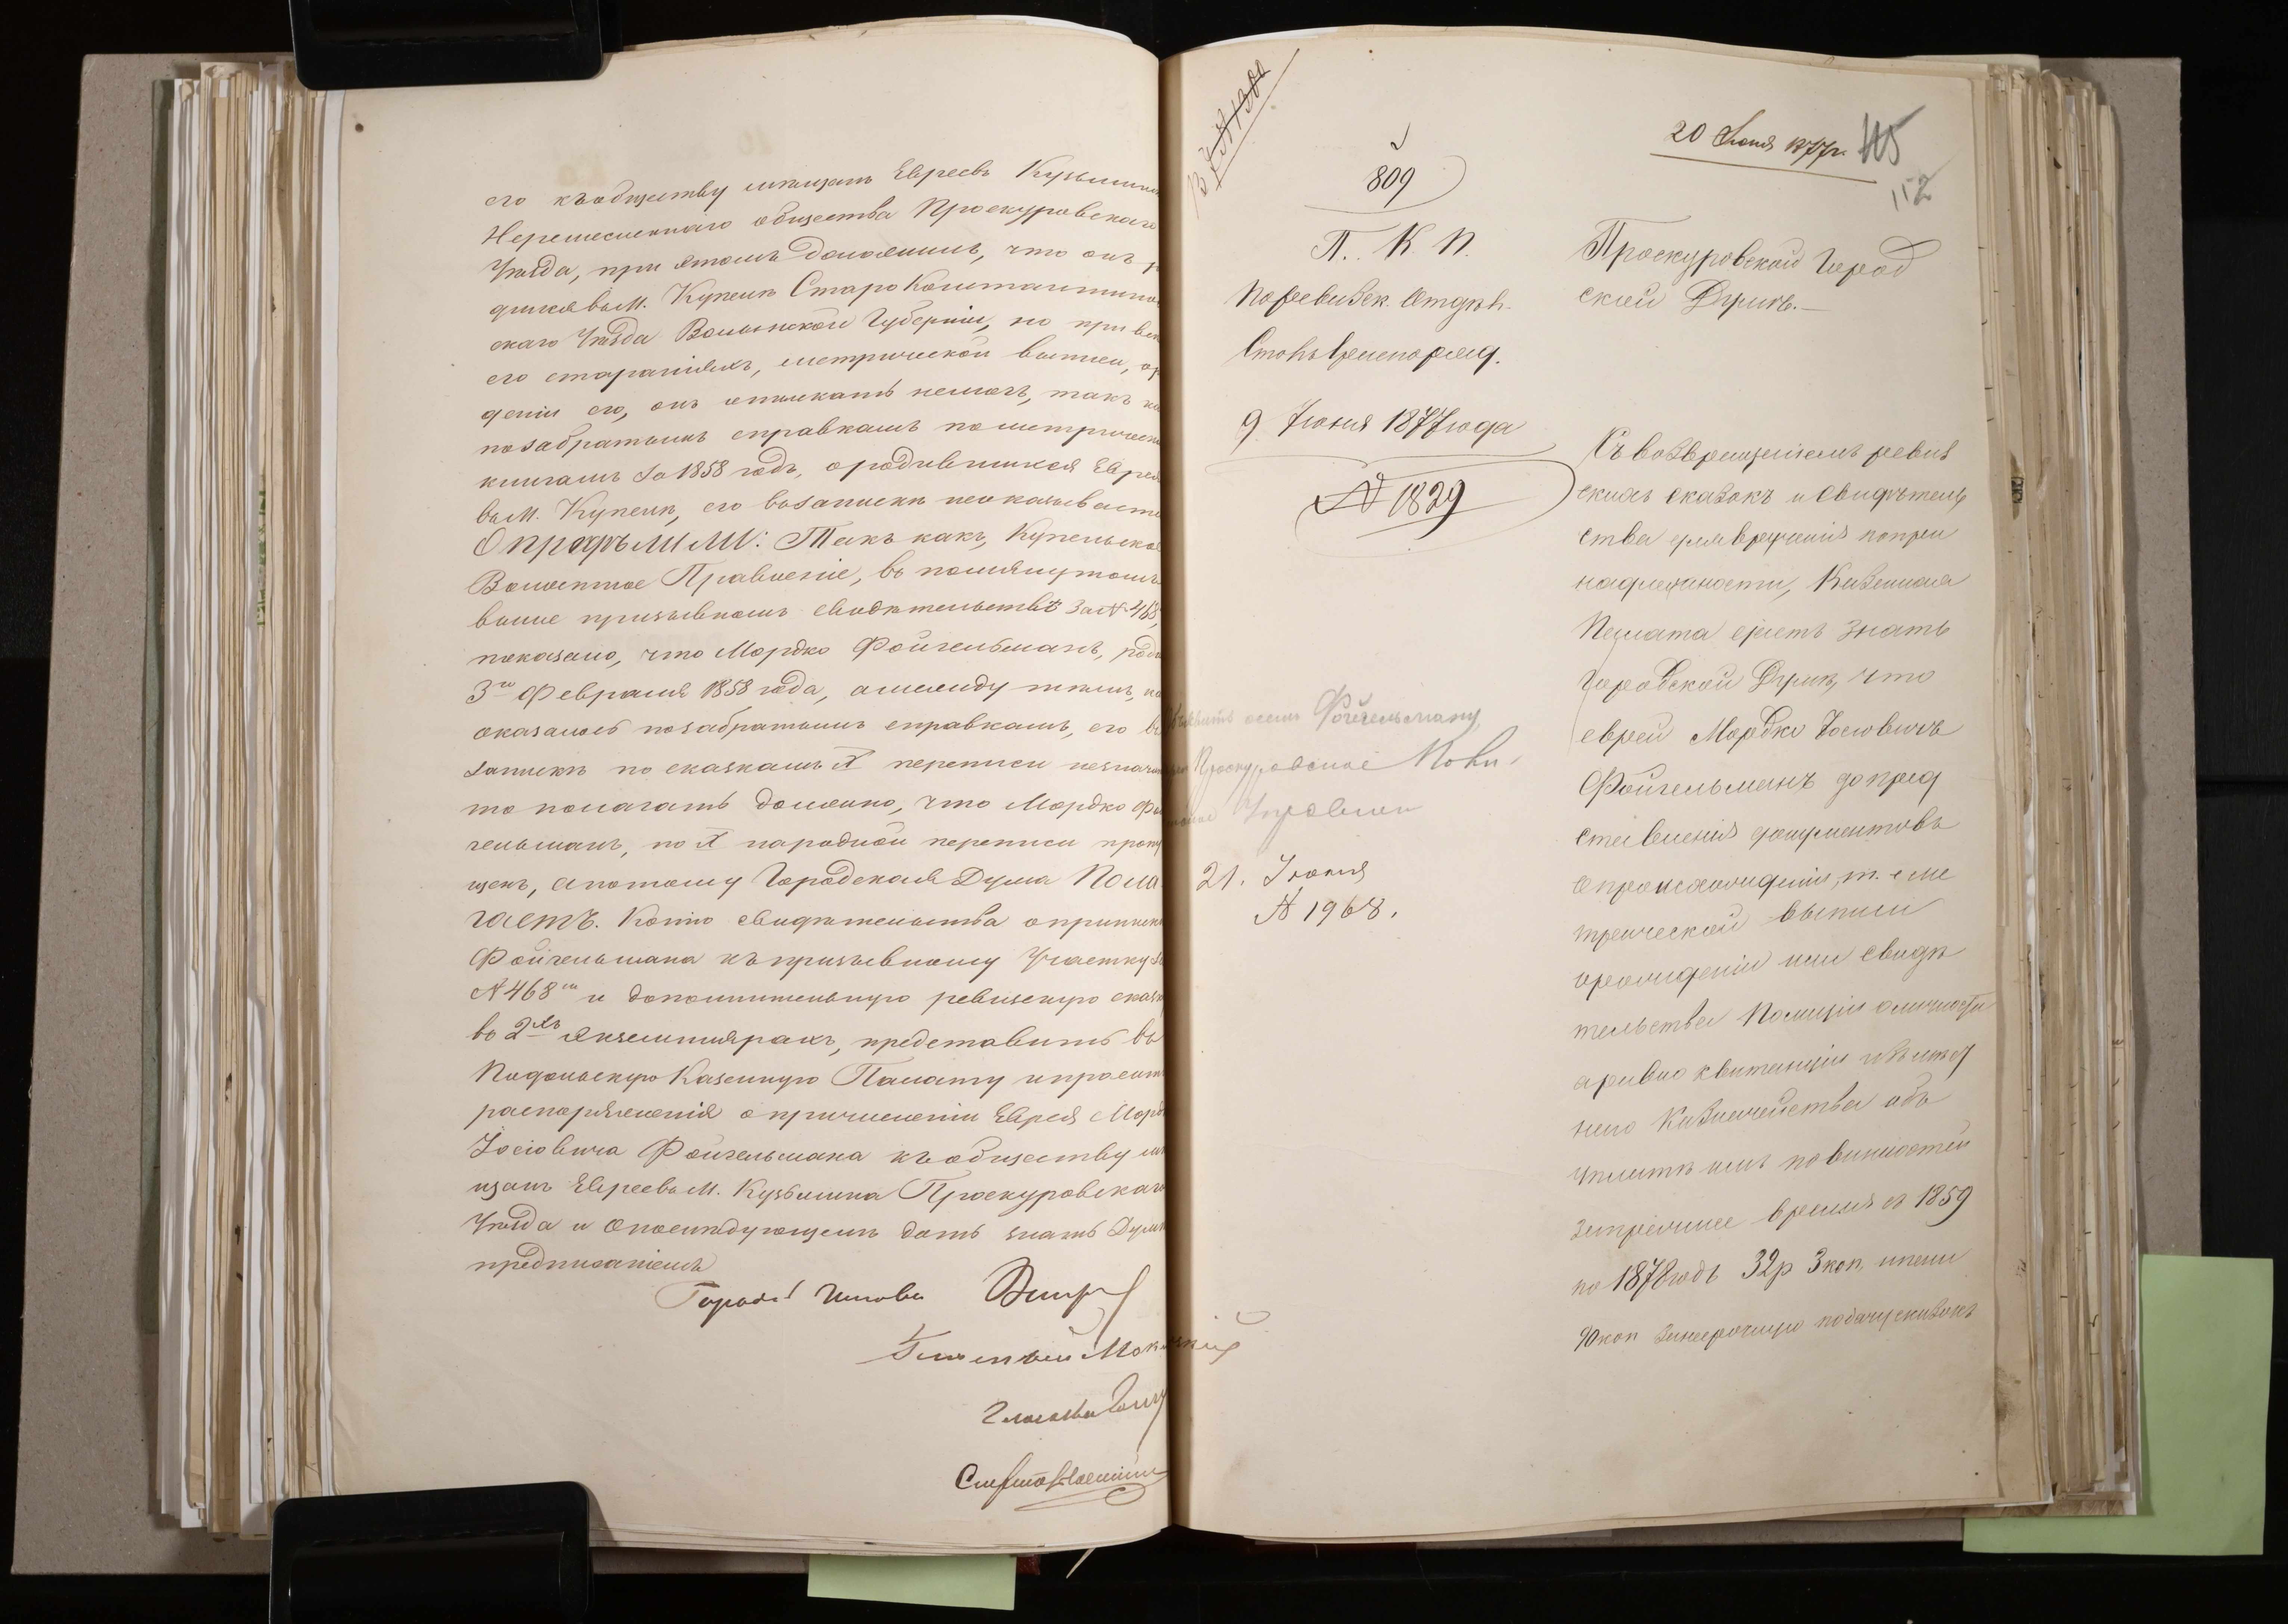 его къ обществу мещанъ Евреевъ Кузьмина
Неремесленнаго общества Проскуровскаго
Уѣзда, при этомъ дополнилъ, что онъ
дился въ м. Купелѣ Старо Константинов
скаго Уѣзда Волынской Губерніи, но при всемъ
его стараніяхъ, метрической выписи, о
деніи его, онъ отыскать не могъ, такъ ка
по забратымъ справкамъ по метрическ
книгамъ за 1858 годъ, о родившихся Евре
въ м. Купелѣ, его въ запискѣ не оказывает
Опредѣлили: Такъ какъ, Купельское
Волостное Правленіе, въ помянутомъ
выше призывномъ свидѣтельствѣ за № 468,
показано, что Мордко Фойгельманъ, род
3го Февраля 1858 года, а между тѣмъ, не
оказалось по забратымъ справкамъ, его въ
запискѣ по сказкамъ X переписи не знач
то полагать должно, что Мордко Фой
гельманъ, по X народной переписи проп
щенъ, а потому Городская Дума Пола
гаетъ. Копію свидѣтельства о приписк
Фойгельмана къ призывному Участку за
№ 468м и дополнительную ревизскую сказк
въ 2хъ экземплярахъ, представить въ
Подольскую Казенную Палату и просить
распоряженія о причисленіи Еврея Мордк
Іосіовича Фойгельмана къ обществу мѣ
щанъ Евреевъ м. Кузьмина Проскуровскаго
Уѣзда и о послѣдующемъ дать знать Думѣ
предписаніемъ
Городс Голова
Гласный
Гласный
809
П. К. П.
По ревизск. Отдѣл.
Столъ
9 Іюня 1877 года
№ 1829
Объявить осемъ Фойгельману,
Проскуровское Поли
Управлен
21. Іюня
№ 1968.
20 Іюня 1877 г.
115
112
Проскуровской Город
ской Думѣ.—
Съ возвращеніемъ ревиз
скихъ сказокъ и свидѣтель
ства для врученія по при
надлежности, Казенная
Палата даетъ знать
Городской Думѣ, что
еврей Мордко Іосіовичъ
Фойгельманъ до пред
ставленія документовъ
о происхожденіи, т. е ме
трической выписи
о рожденіи или свидѣ
тельства Полиціи о личности
а равно квитанціи уѣзд
наго Казначейства объ
уплатѣ имъ повинностей
за прежнее время съ 1859
по 1878 годъ 32 р 3 коп. и пени
90 коп за несрочную подачу сказокъ